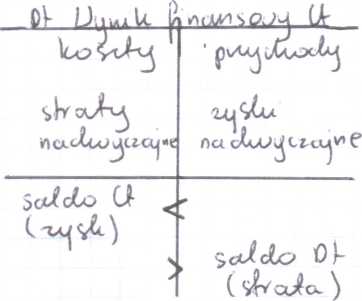 Dt Wynik finansowy Ct
koszty przychody
straty nadzwyczajne zyski nadzwyczajne
saldo Ct (zysk) <
> saldo Dt (strata)